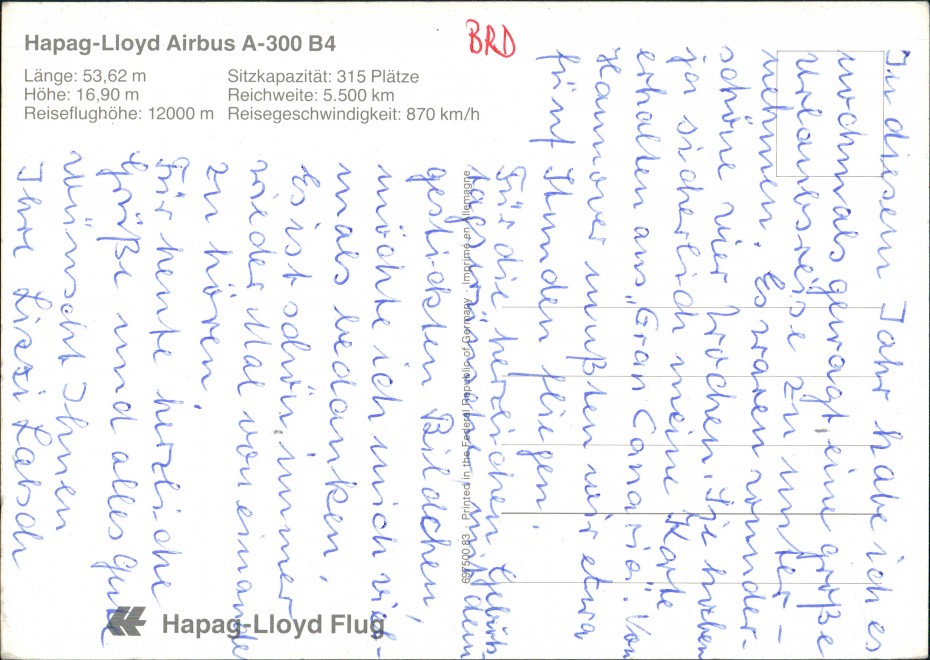 Hapag-Lloyd Airbus A-300 B4
Länge: 53,62 m
Höhe: 16,90 m
Reiseflughöhe: 12000 m
Sitzkapazität: 315 Plätze
Reichweite: 5.500 km
Reisegeschwindigkeit: 870 km/h
BRD
In diesem Jahr habe ich es
nochmals gewagt eine große
Urlaubsreise zu unter-
nehmen. Es waren wunder-
schöne vier Wochen. Sie haben
ja sicherlich meine Karte
erhalten aus „Gran Canaria". Von
Hannover mußten wir etwa
fünf Stunden fliegen.
Für die herzlichen Geburts-
tagswünsche mit dem
gestickten Bildchen,
möchte ich mich viel-
mals bedanken,
Es ist schön immer
wieder Mal voneinander
zu hören.
Für heute herzliche
Grüße und alles Gute
wünscht Ihnen
Ihre
697500 83 · Printed in the Federal Republic of Germany · Imprimé en Allemagne
Hapag-Lloyd Flug